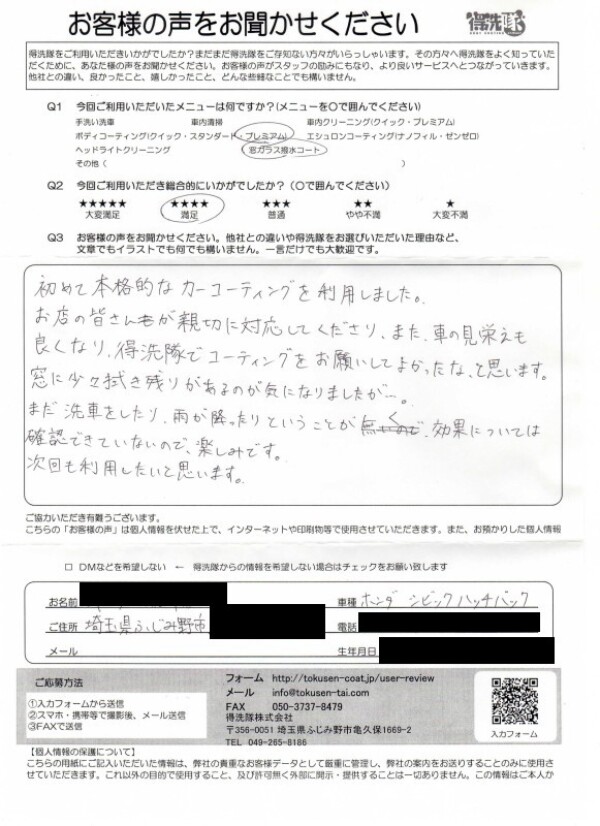 お客様の声をお聞かせください
得洗隊
得洗隊をご利用いただきいかがでしたか?まだまだ得洗隊をご存知ない方々がいらっしゃいます。その方々へ得洗隊をよく知っていた
だくために、あなた様の声をお聞かせください。お客様の声がスタッフの励みにもなり、より良いサービスへとつながっていきます。
他社との違い、良かったこと、嬉しかったこと、どんな些細なことでも構いません。
Q1 今回ご利用いただいたメニューは何ですか?(メニューを〇で囲んでください)
手洗い洗車 車内清掃 車内クリーニング(クイック・プレミアム)
ボディコーティング(クイック・スタンダード・プレミアム) エシュロンコーティング(ナノフィル・ゼンゼロ)
ヘッドライトクリーニング 窓ガラス撥水コート
その他( )
Q2 今回ご利用いただき総合的にいかがでしたか?(〇で囲んでください)
★★★★★ ★★★★ ★★★ ★★ ★
大変満足 満足 普通 やや不満 大変不満
Q3 お客様の声をお聞かせください。他社との違いや得洗隊をお選びいただいた理由など、
文章でもイラストでも何でも構いません。一言だけでも大歓迎です。
初めて本格的なカーコーティングを利用しました。
お店の皆さんが親切に対応してくださり、また、車の見栄えも
良くなり、得洗隊でコーティングをお願いしてよかったな、と思います。
窓に少々拭き残りがあるのが気になりましたが…。
まだ洗車をしたり、雨が降ったりということが無く、効果については
確認できていないので、楽しみです。
次回も利用したいと思います。
ご協力いただき有難うございます。
こちらの「お客様の声」は個人情報を伏せた上で、インターネットや印刷物等で使用させていただきます。また、お預かりした個人情報
□ DMなどを希望しない ← 得洗隊からの情報を希望しない場合はチェックをお願い致します
お名前 車種 ホンダ シビックハッチバック
ご住所 埼玉県ふじみ野市 電話
メール 生年月日
ご応募方法
①入力フォームから送信
②スマホ・携帯等で撮影後、メール送信
③FAXで送信
フォーム http://tokusen-coat.jp/user-review
メール info@tokusen-tai.com
FAX 050-3737-8479
得洗隊株式会社
〒356-0051 埼玉県ふじみ野市亀久保1669-2
TEL 049-265-8186
入力フォーム
【個人情報の保護について】
こちらの用紙にご記入いただいた情報は、弊社の貴重なお客様データとして厳重に管理し、弊社の案内をお送りすることのみに使用さ
せていただきます。これ以外の目的で使用すること、及び許可無く外部に開示・提供することは一切ありません。この情報はご本人か